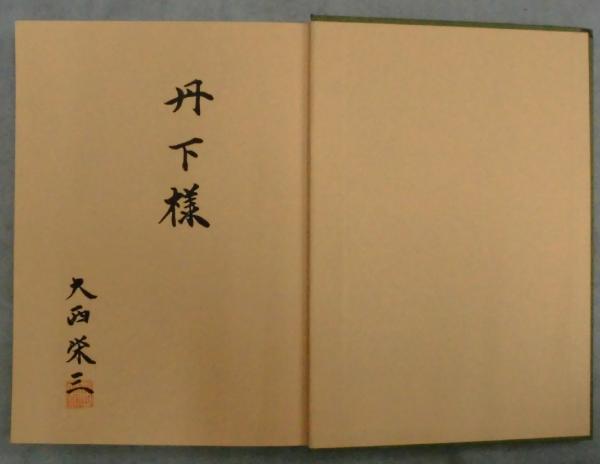 丹下様
大西栄三